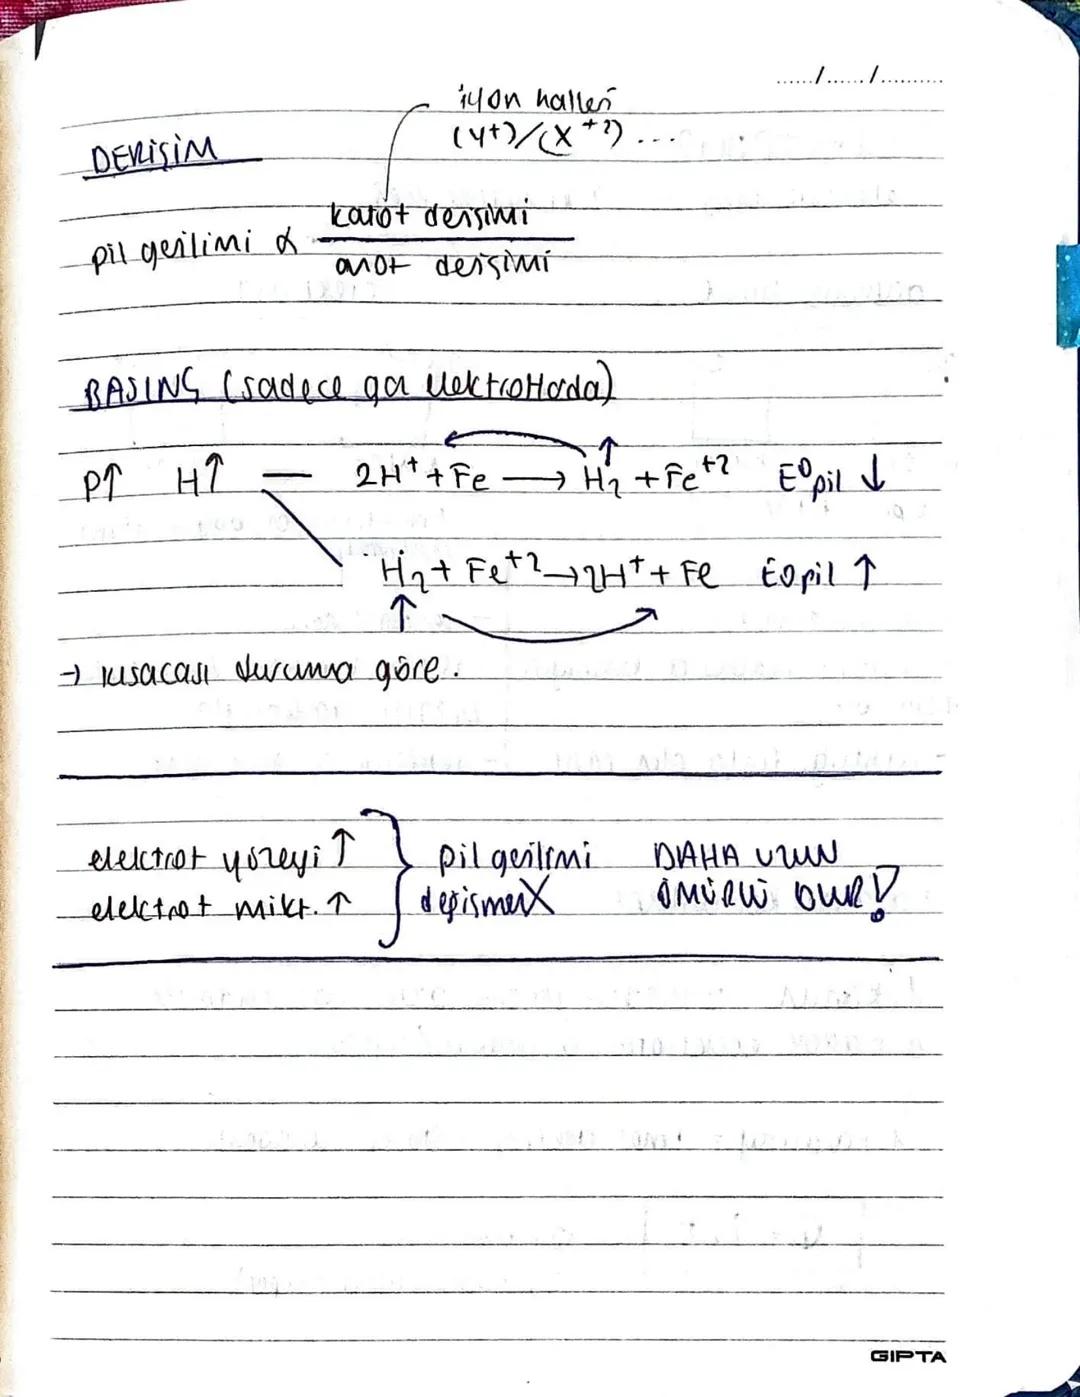 ....../....../...........
iyon halleri
(Y+)/(X+2) ...
DERİŞİM
pil gerilimi α katot derişimi
anot derişimi
BASINÇ (sadece gaz elektrotlarda)
P↑ H↑ — 2H+ + Fe → H2 ↑ + Fe+2 E0pil ↓
H2 + Fe+2 → 2H+ + Fe E0pil ↑
→ kısacası duruma göre.
elektrot yüzeyi ↑ } pil gerilimi DAHA UZUN
elektrot mikt. ↑ değişmez X ÖMÜRLÜ OLUR!
GIPTA